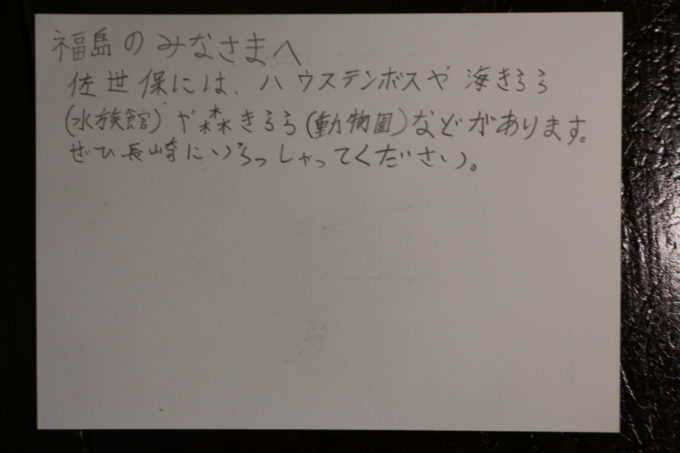 福島のみなさまへ
佐世保には、ハウステンボスや海きらら
(水族館)や森きらら(動物園)などがあります。
ぜひ長崎にいらっしゃってください。